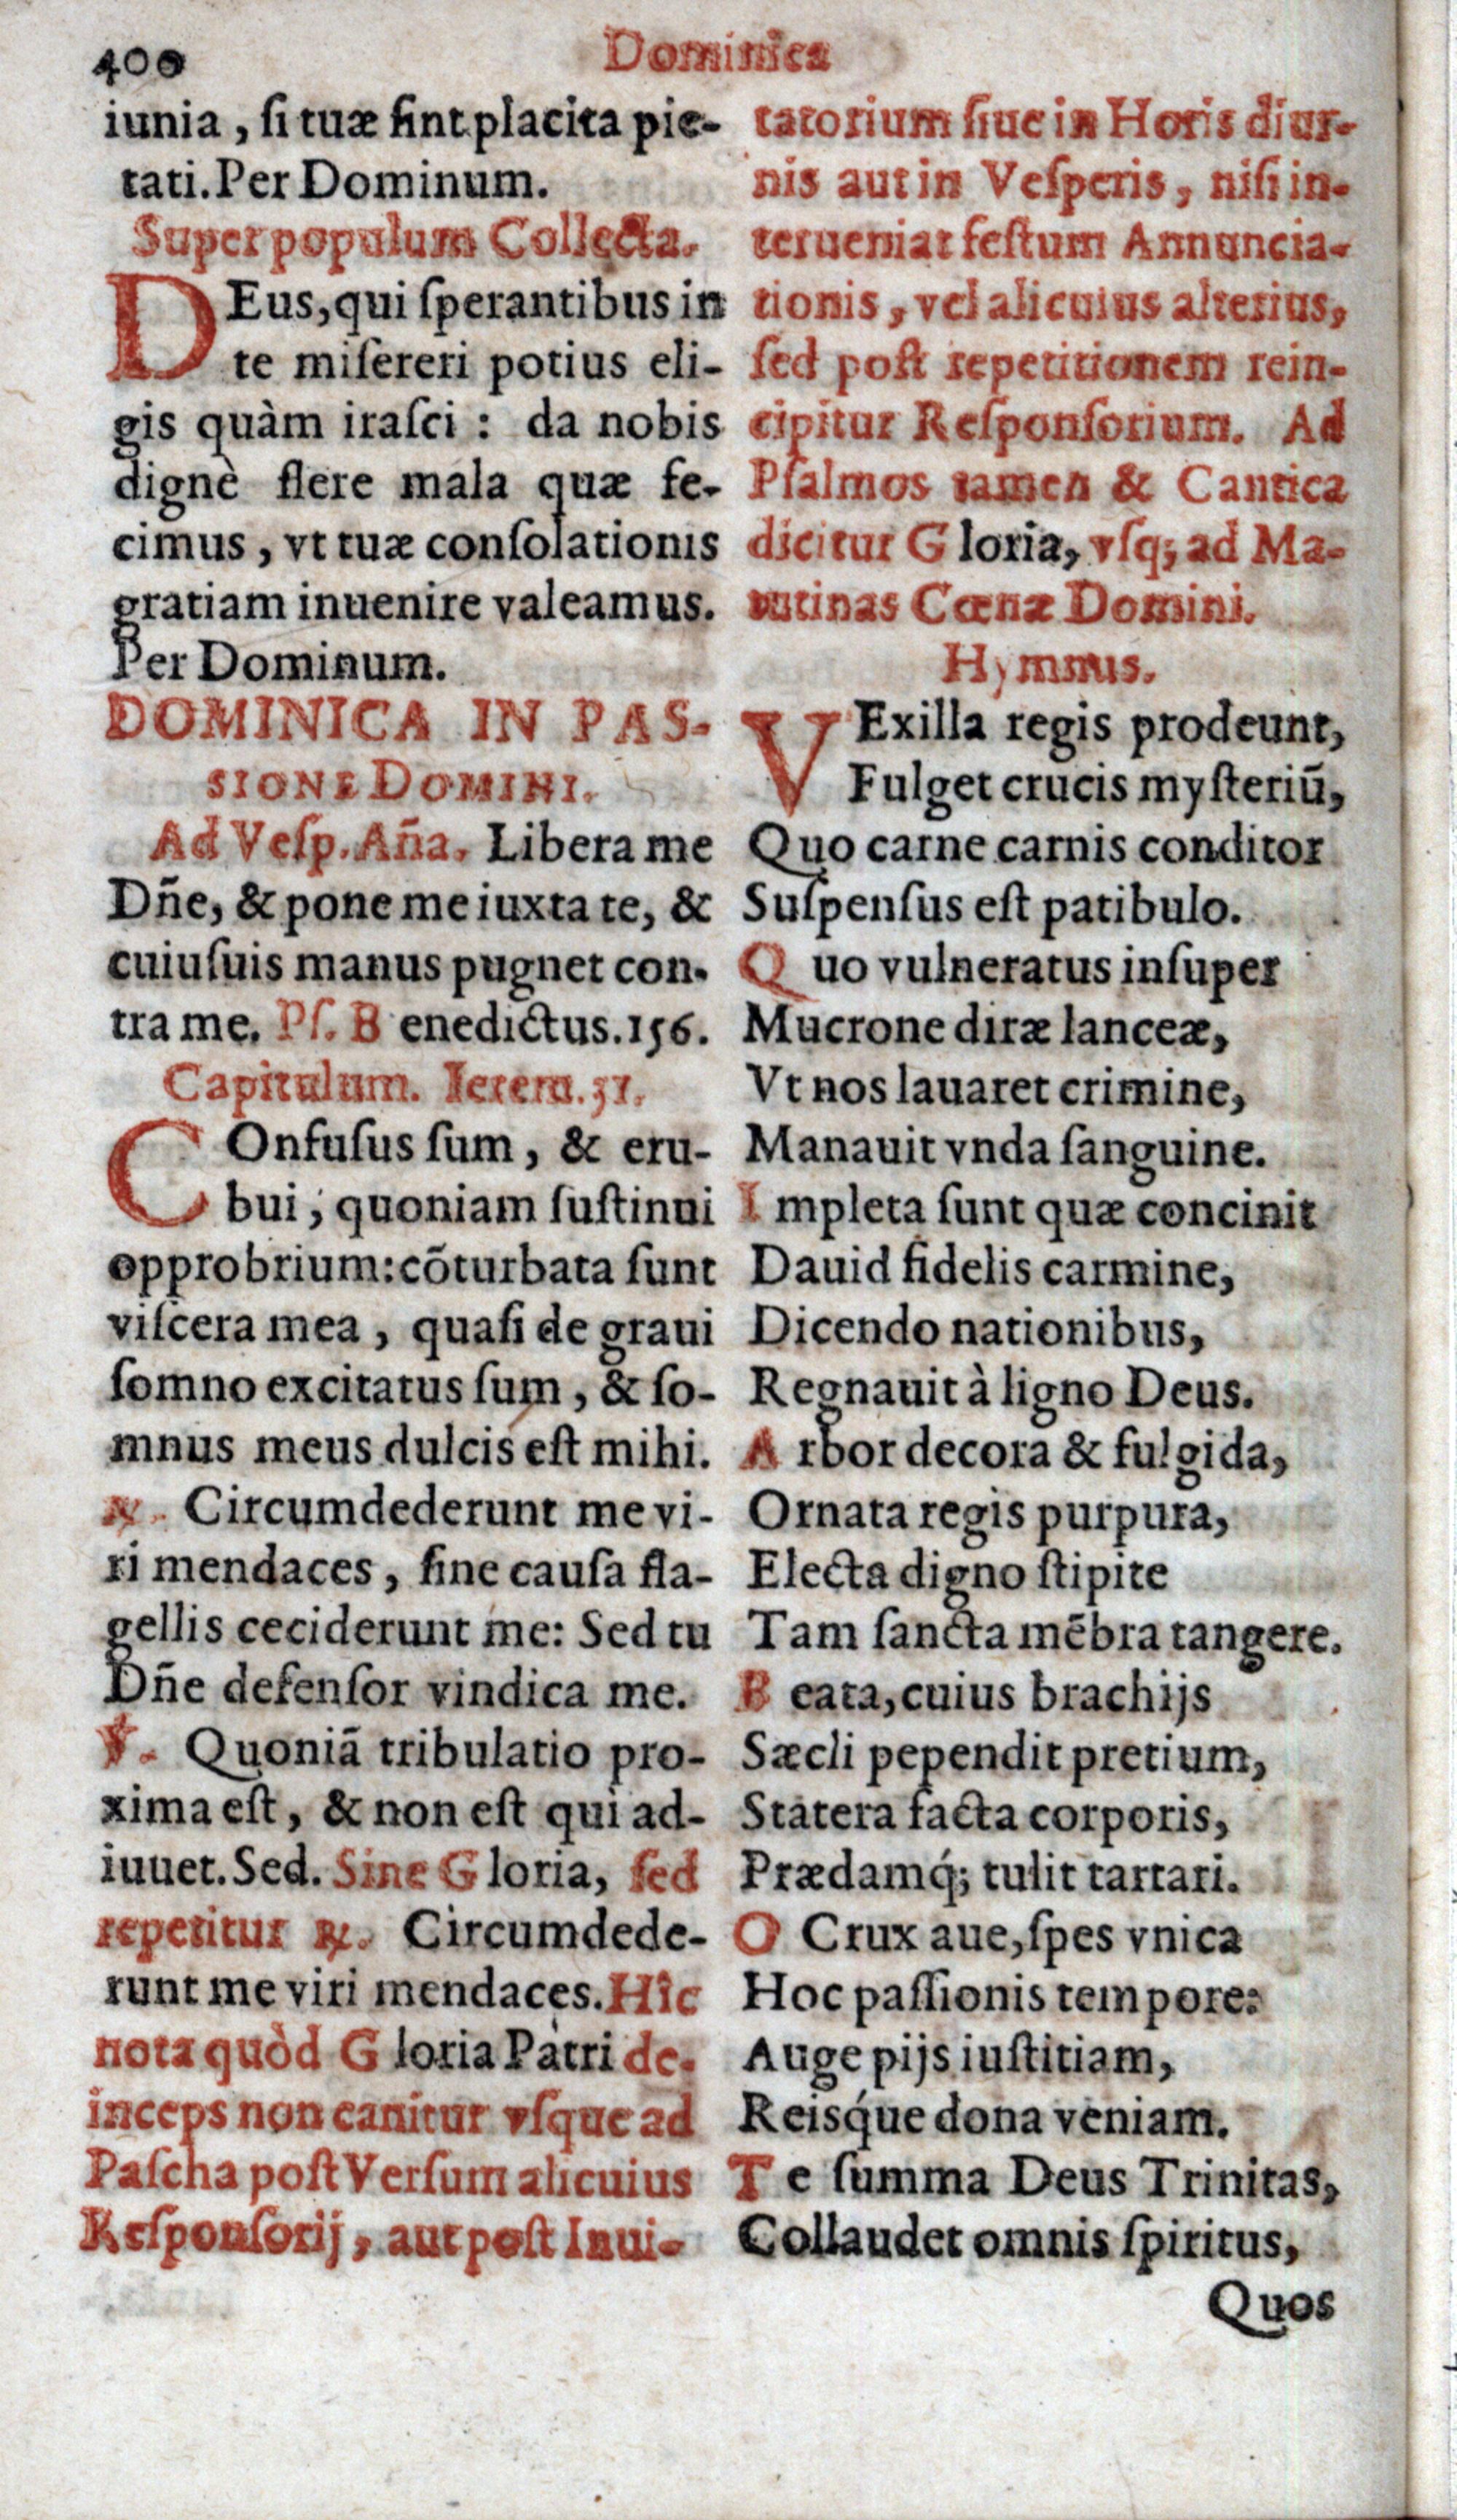 400
Dominica
iunia, ſi tuæ ſint placita pie-
tati. Per Dominum.
Super populum Collecta.
DEus, qui ſperantibus in
te miſereri potius eli-
gis quàm iraſci : da nobis
dignè flere mala quæ fe-
cimus, vt tuæ conſolationis
gratiam inuenire valeamus.
Per Dominum.
DOMINICA IN PAS-
SIONE DOMINI.
Ad Veſp. Añа. Libera me
Dñe, & pone me iuxta te, &
cuiuſuis manus pugnet con-
tra me. Pſ. Benedictus. 156.
Capitulum. Ierem. 31.
COnfuſus ſum, & eru-
bui, quoniam ſuſtinui
opprobrium: cõturbata ſunt
viſcera mea, quaſi de graui
ſomno excitatus ſum, & ſo-
mnus meus dulcis eſt mihi.
℟. Circumdederunt me vi-
ri mendaces, ſine cauſa fla-
gellis ceciderunt me: Sed tu
Dñe defenſor vindica me.
℣. Quoniã tribulatio pro-
xima eſt, & non eſt qui ad-
iuuet. Sed. Sine Gloria, ſed
repetitur ℟. Circumdede-
runt me viri mendaces. Hîc
nota quòd Gloria Patri de-
inceps non canitur vſque ad
Paſcha poſt Verſum alicuius
Reſponſorij, aut poſt Inui-
tatorium ſiue in Horis diur-
nis aut in Veſperis, niſi in-
terueniat feſtum Annuncia-
tionis, vel alicuius alterius,
ſed poſt repetitionem rein-
cipitur Reſponſorium. Ad
Pſalmos tamen & Cantica
dicitur Gloria, vſq; ad Ma-
tutinas Cœnæ Domini.
Hymnus.
VExilla regis prodeunt,
Fulget crucis myſteriũ,
Quo carne carnis conditor
Suſpenſus eſt patibulo.
Quo vulneratus inſuper
Mucrone diræ lanceæ,
Vt nos lauaret crimine,
Manauit vnda ſanguine.
Impleta ſunt quæ concinit
Dauid fidelis carmine,
Dicendo nationibus,
Regnauit à ligno Deus.
Arbor decora & fulgida,
Ornata regis purpura,
Electa digno ſtipite
Tam ſancta mẽbra tangere.
Beata, cuius brachijs
Sæcli pependit pretium,
Statera facta corporis,
Prædamq́; tulit tartari.
O Crux aue, ſpes vnica
Hoc paſſionis tempore:
Auge pijs iuſtitiam,
Reisq́ue dona veniam.
Te ſumma Deus Trinitas,
Collaudet omnis ſpiritus,
Quos